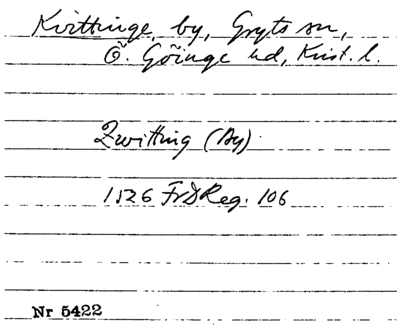 Kvittinge, by, Gryts sn,
Ö. Göinge hd, Krist. l.
Zwitting (By)
1526 FrDReg. 106
Nr 5422